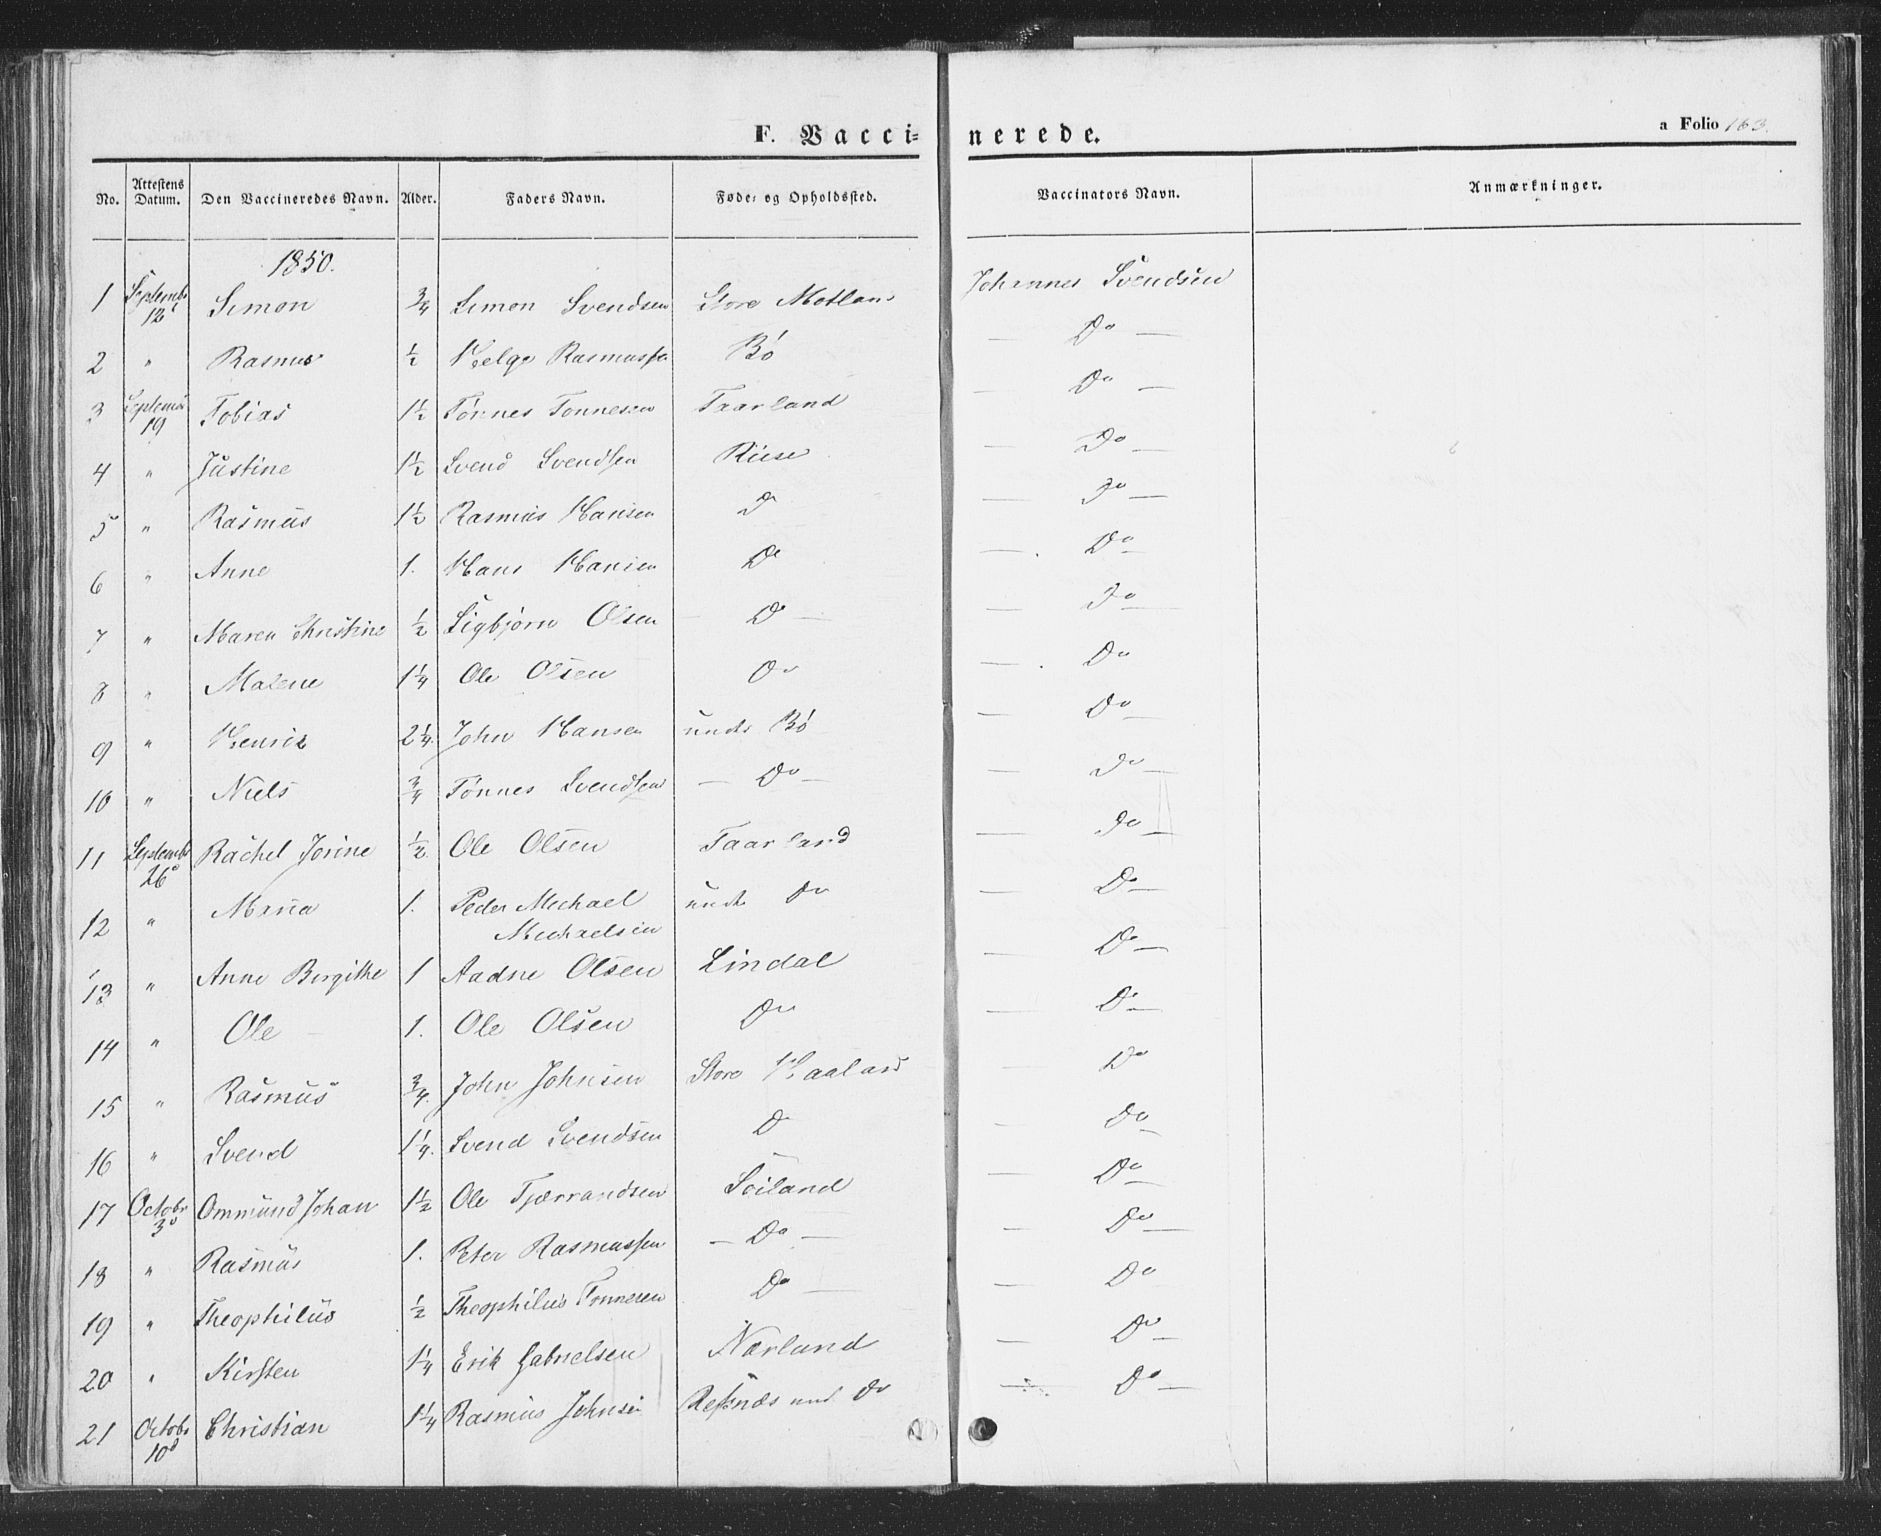 F. Vaccinerede.
a Folio 163.
No. Attestens Datum. Den Vaccineredes Navn. Alder. Faders Navn. Føde- og Opholdssted. Vaccinators Navn. Anmærkninger.
1850.
1 Septembr 12 Simon ¾ Simon Svendsen Store Motland Johannes Svendsen
2 " Rasmus ½ Helge Rasmussen Bø — Do —
3 Septembr 19 Tobias 1½ Tønnes Tønnesen Taarland — Do —
4 " Justine 1½ Svend Svendsen Riise — Do —
5 " Rasmus 1½ Rasmus Hansen Do — Do —
6 " Anne 1. Hans Hansen Do — Do —
7 " Maren Christine ½ Sigbjørn Olsen — Do — — Do —
8 " Malene 1¼ Ole Olsen Do — Do —
9 " Henrik 2¼. John Hansen under Bø — Do —
10 " Niels ¾ Tønnes Svendsen — Do — — Do —
11 Septembr 26 Rachel Jorine ½ Ole Olsen Taarland — Do —
12 " Maria 1. Peder Michael Michaelsen under Do — Do —
13 " Anne Birgithe 1 Aadne Olsen Lindal — Do —
14 " Ole 1. Ole Olsen Do — Do —
15 " Rasmus ¾. John Johnsen Store Haaland — Do
16 " Svend 1¼. Svend Svendsen Do — Do —
17 Octobr 3d Ommund Johan 1½ Ole Tjærrandsen Søiland — Do —
18 " Rasmus 1. Peter Rasmussen — Do — — Do —
19 " Theophilus ½ Theophilus Tønnesen Do — — Do
20 " Kirsten 1¼ Erik Gabrielsen Nærland — Do —
21 Octobr 10d Christian 1¼ Rasmus Johnsen Refsnæs und Do — Do —